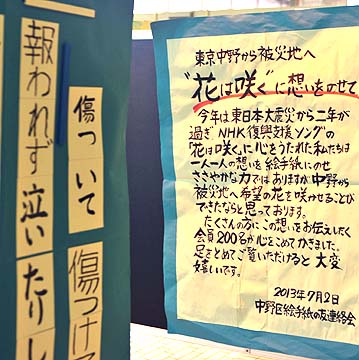 東京中野から被災地へ
"花は咲く"に想いをのせて
今年は東日本大震災から二年が
過ぎNHK復興支援ソングの
「花は咲く」に心をうたれた私たちは
一人一人の想いを絵手紙にのせ
ささやかな力ではありますが中野から
被災地へ希望の花を咲かせることが
できたならと思っております。
たくさんの方にこの想いをお伝えしたく
会員200名が心をこめてかきました。
足をとめてご覧いただけると大変
嬉しいです。
2013年7月2日
中野区絵手紙の友連絡会
傷ついて
傷つけて
報われず
泣いたりし